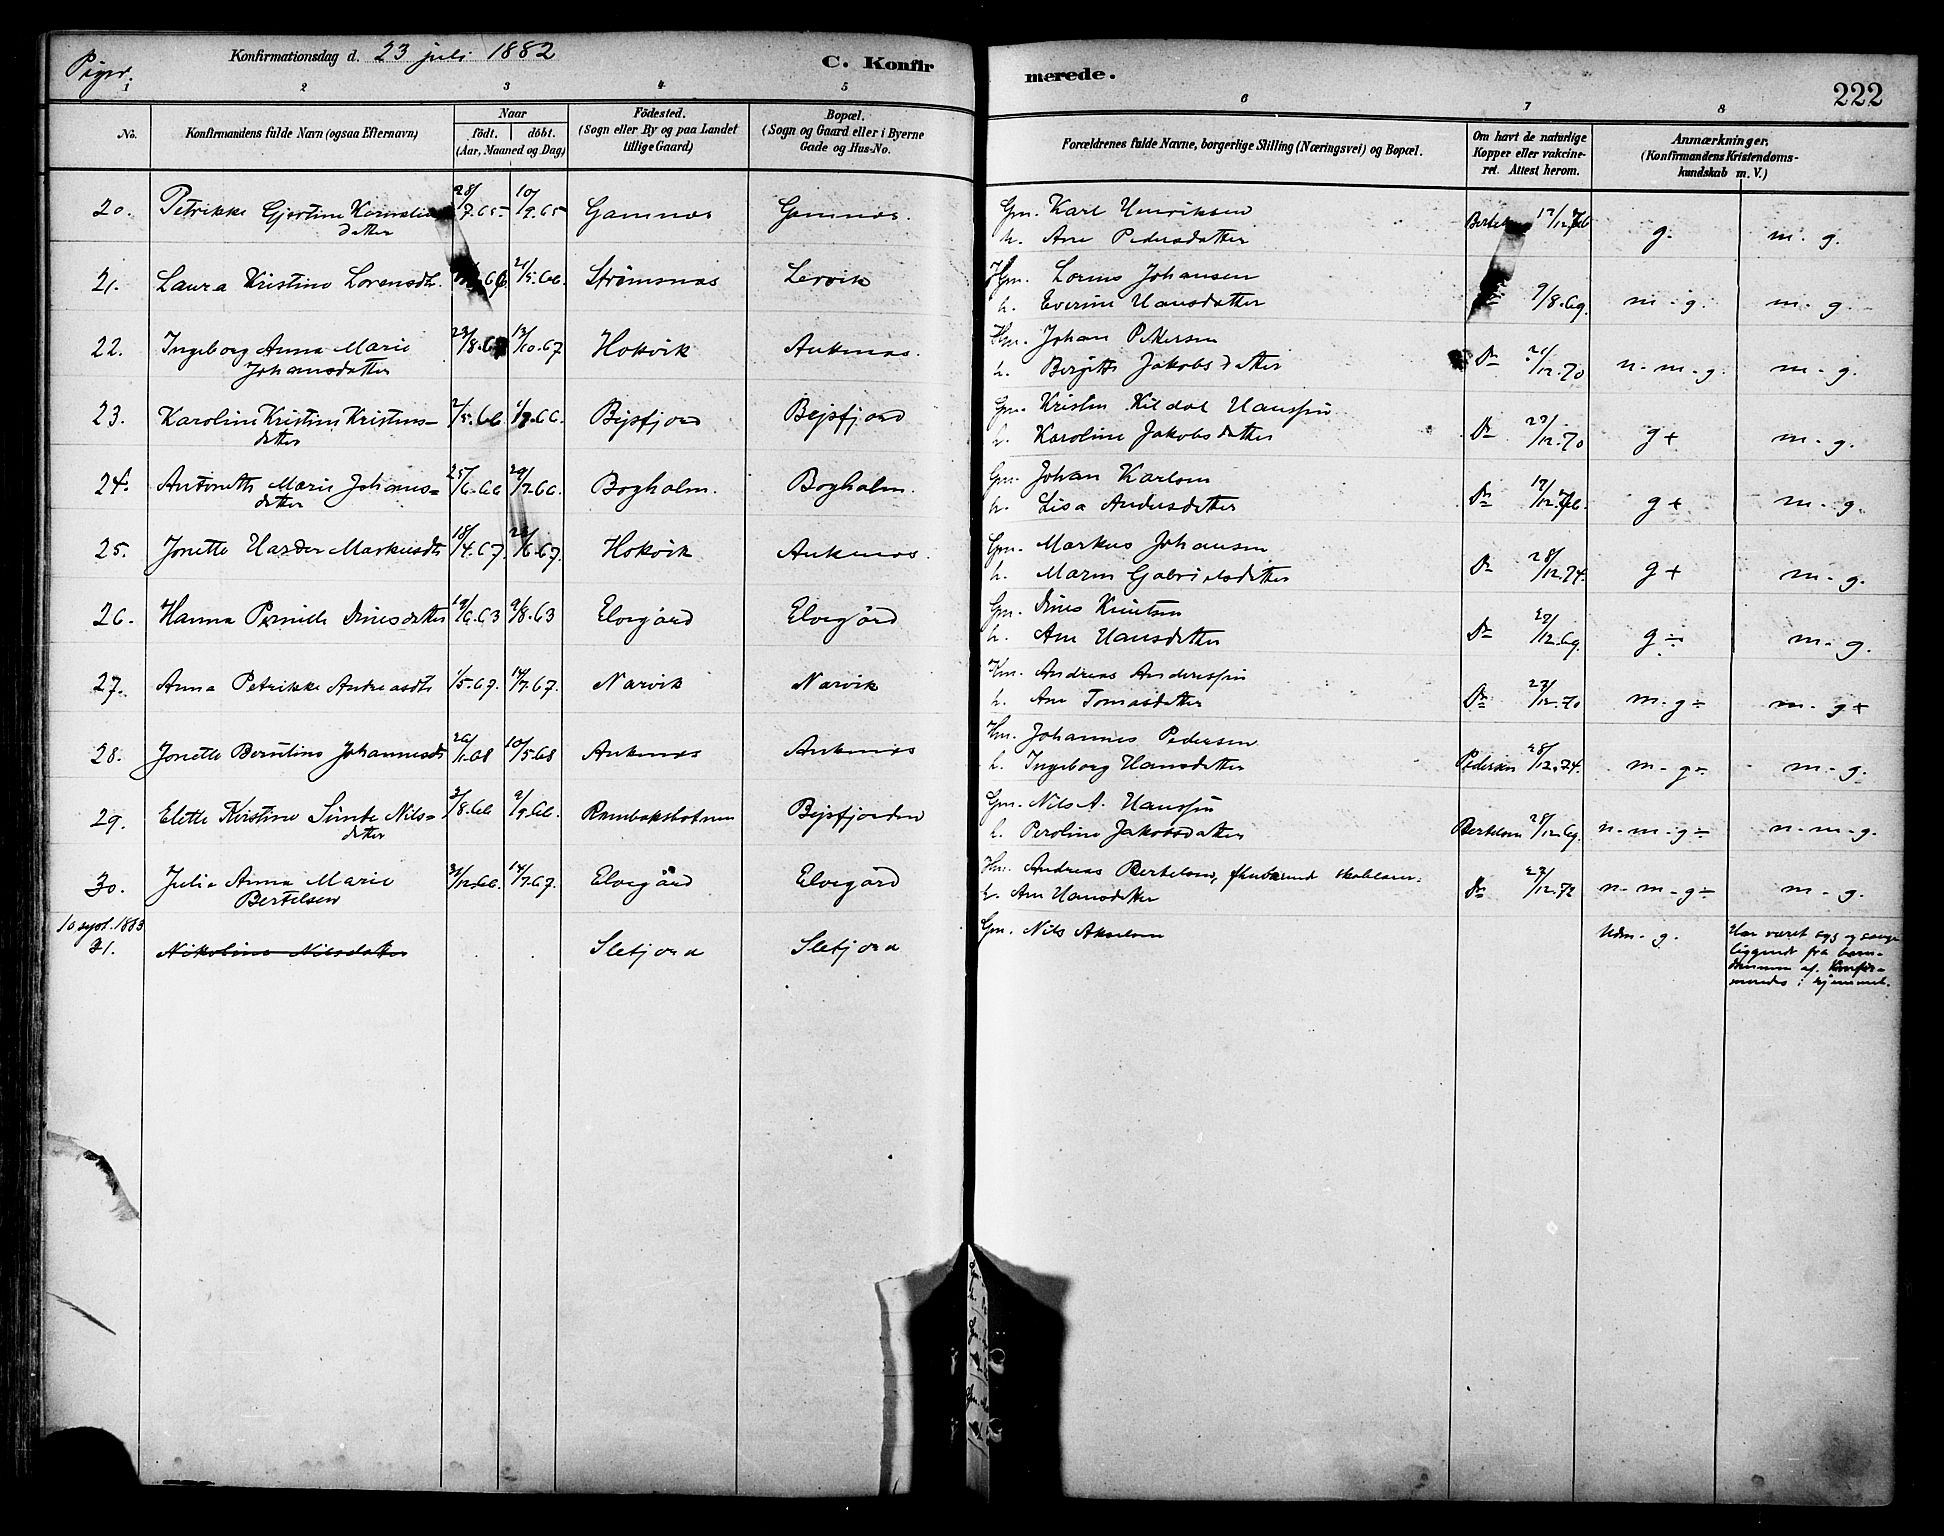 Piger.
Konfirmationsdag d. 23 juli 1882
C. Konfirmerede.
222
1 2 3 4 5 6 7 8
No.
Konfirmandens fulde Navn (ogsaa Efternavn)
Naar
födt. döbt.
(Aar, Maaned og Dag)
Födested.
(Sogn eller By og paa Landet
tillige Gaard)
Bopæl.
(Sogn og Gaard eller i Byerne
Gade og Hus-No.
Forældrenes fulde Navne, borgerlige Stilling (Næringsvei) og Bopæl.
Om havt de naturlige
Kopper eller vakcine-
ret. Attest herom.
Anmærkninger.
(Konfirmandens Kristendoms-
kundskab m. V.)
20. Petrikke Gjertine 28/7.65 10/9.65 Gamnæs Gamnæs. Gm. Karl Henriksen 17/12. g. m. g.
datter h. Ane Pedersdatter
21. Laura Kristine Lorensdt. 66 21/5.66. Strømsnæs Lervik Gm. Lorens Johansen
h. Everine Hansdatter 9/8.69. m. g. m. g.
22. Ingeborg Anna Marie 23/8.67 13/10.67 Hokvik Anknæs. Hm. Johan Pettersen
Johansdatter h. Birgitte Jakobsdatter Do 21/12.70 n. m. g. m. g.
23. Karoline Kristine Kristens- 2/5.66 Bejsfjord Bejsfjord Gm. Kristen Kildal Hanssen
datter h. Karoline Jakobsdatter Do 29/12.70 g+ m. g.
24. Antonette Marie Johans- 25/6.66 29/7.66. Bogholm. Bogholm. Gm. Johan Karlsen
datter h. Lisa Andersdatter Do 17/12. g+ m. g.
25. Jonette Harder Markusdt. 18/4.67. 6.67. Hokvik Anknæs. Gm. Markus Johansen
h. Maren Gabrielsdatter Do 28/12.74. g+ m. g.
26. Hanna Pernille Dinesdatter 19/6.63 9/8.63 Elvegård Elvegård Gm. Dines Knutsen
h. Ane Hansdatter Do 29/12.69. g÷ m. g.
27. Anna Petrikke Andreasdt. 1/5.67. 14/7.67. Narvik Narvik Hm. Andreas Anderssen
h. Ane Tomasdatter Do 27/12.70 m. g÷ m. g+
28. Jonette Berntine Johannesdt. 26/1.68 10/5.68 Anknæs Anknæs Hm. Johannes Pedersen
h. Ingeborg Hansdatter Pedersen 28/12.74. m. g÷ m. g.
29. Elette Kristine Simbe Nils- 3/8.66 9/9.66. Rombaksbotnen Bejsfjorden Gm. Nils A. Hanssen
datter h. Peroline Jakobsdatter Bertelsen 28/12.69. n. m. g÷ n. m. g.
30. Julie Anna Marie 31/12.66. 14/7.67. Elvegård Elvegård Hm. Andreas Bertelsen,
Bertelsen h. Ane Hansdatter Do 27/12.72 n. m. g÷ m. g.
10 sept. 1883
31. Nikoline Nilsdatter Sletjord Sletjord Gm. Nils Akselsen Udm. g. Har været syg og senge-
liggende fra barn-
dommen af. Konfir-
meredes i hjemmet.